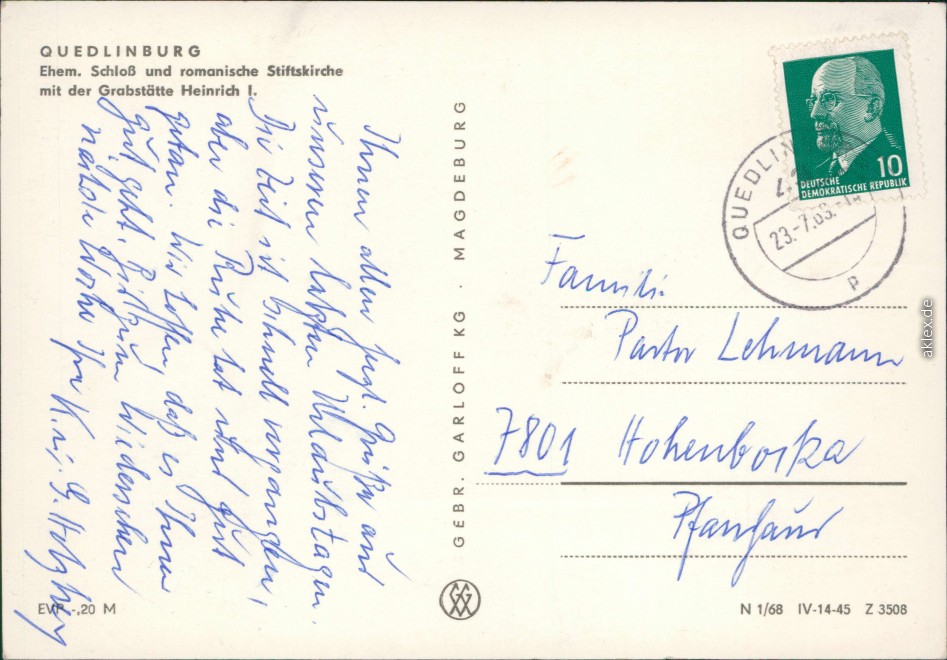 QUEDLINBURG
Ehem. Schloß und romanische Stiftskirche
mit der Grabstätte Heinrich I.
Ihnen allen herzl. Grüße aus
unseren letzten Urlaubstagen.
Die Zeit ist schnell vergangen,
aber die Ruhe hat uns gut
getan. Wir hoffen, daß es Ihnen
gut geht. Auf ein Wiedersehen
nächste Woche Ihre
GEBR. GARLOFF KG · MAGDEBURG
DEUTSCHE
DEMOKRATISCHE REPUBLIK
10
QUEDLIN
23.-7.68.-1
p
Familie
Pastor Lehmann
7801 Hohenbocka
Pfarrhaus
EVP -,20 M
N 1/68 IV-14-45 Z 3508
aklex.de